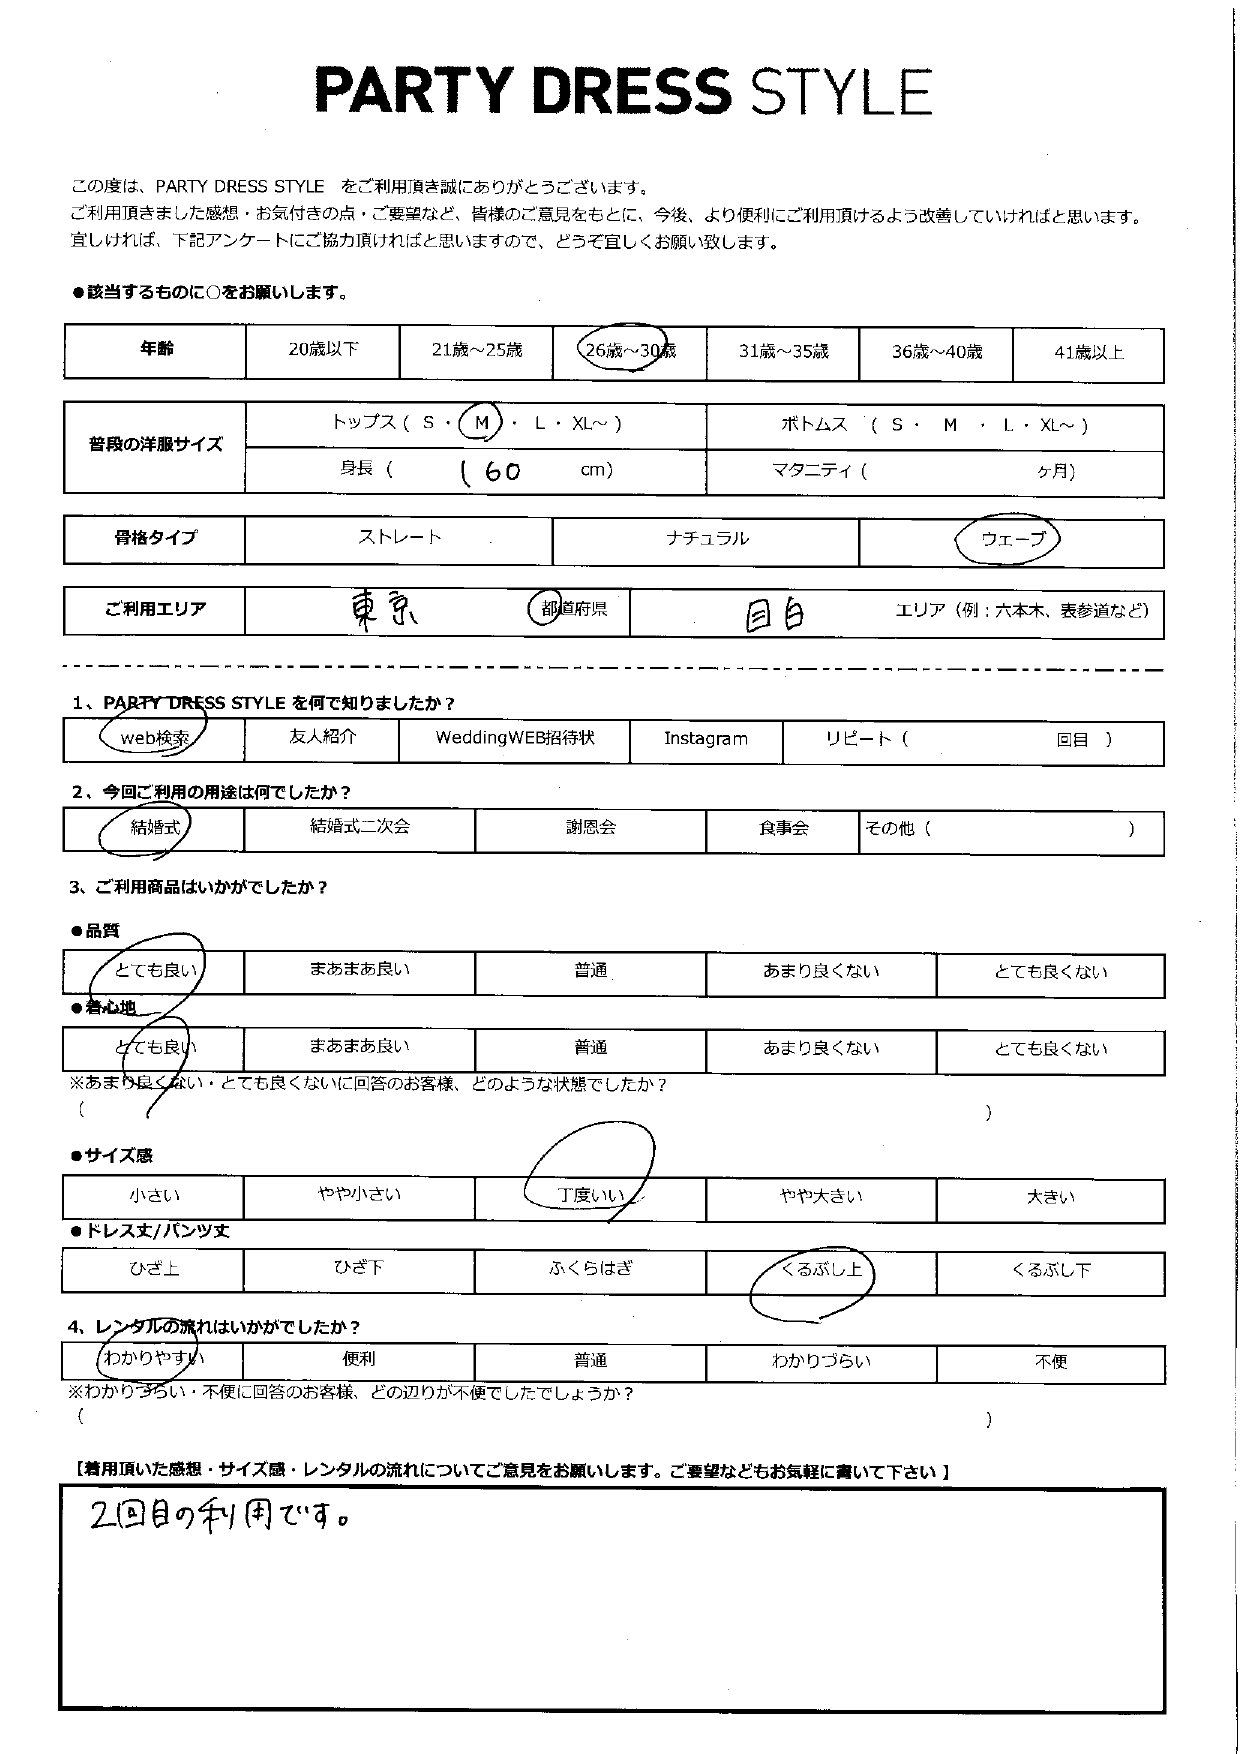 PARTY DRESS STYLE
この度は、PARTY DRESS STYLE をご利用頂き誠にありがとうございます。
ご利用頂きました感想・お気付きの点・ご要望など、皆様のご意見をもとに、今後、より便利にご利用頂けるよう改善していければと思います。
宜しければ、下記アンケートにご協力頂ければと思いますので、どうぞ宜しくお願い致します。
●該当するものに○をお願いします。
年齢 20歳以下 21歳～25歳 26歳～30歳 31歳～35歳 36歳～40歳 41歳以上
普段の洋服サイズ トップス ( S ・ M ・ L ・ XL～ ) ボトムス ( S ・ M ・ L ・ XL～ )
身長 ( 160 cm) マタニティ ( ヶ月)
骨格タイプ ストレート ナチュラル ウェーブ
ご利用エリア 東京 都道府県 目白 エリア（例：六本木、表参道など）
1、PARTY DRESS STYLE を何で知りましたか？
web検索 友人紹介 WeddingWEB招待状 Instagram リピート ( 回目 )
2、今回ご利用の用途は何でしたか？
結婚式 結婚式二次会 謝恩会 食事会 その他 ( )
3、ご利用商品はいかがでしたか？
●品質
とても良い まあまあ良い 普通 あまり良くない とても良くない
●着心地
とても良い まあまあ良い 普通 あまり良くない とても良くない
※あまり良くない・とても良くないに回答のお客様、どのような状態でしたか？
( )
●サイズ感
小さい やや小さい 丁度いい やや大きい 大きい
●ドレス丈/パンツ丈
ひざ上 ひざ下 ふくらはぎ くるぶし上 くるぶし下
4、レンタルの流れはいかがでしたか？
わかりやすい 便利 普通 わかりづらい 不便
※わかりづらい・不便に回答のお客様、どの辺りが不便でしたでしょうか？
( )
【着用頂いた感想・サイズ感・レンタルの流れについてご意見をお願いします。ご要望などもお気軽に書いて下さい】
2回目の利用です。